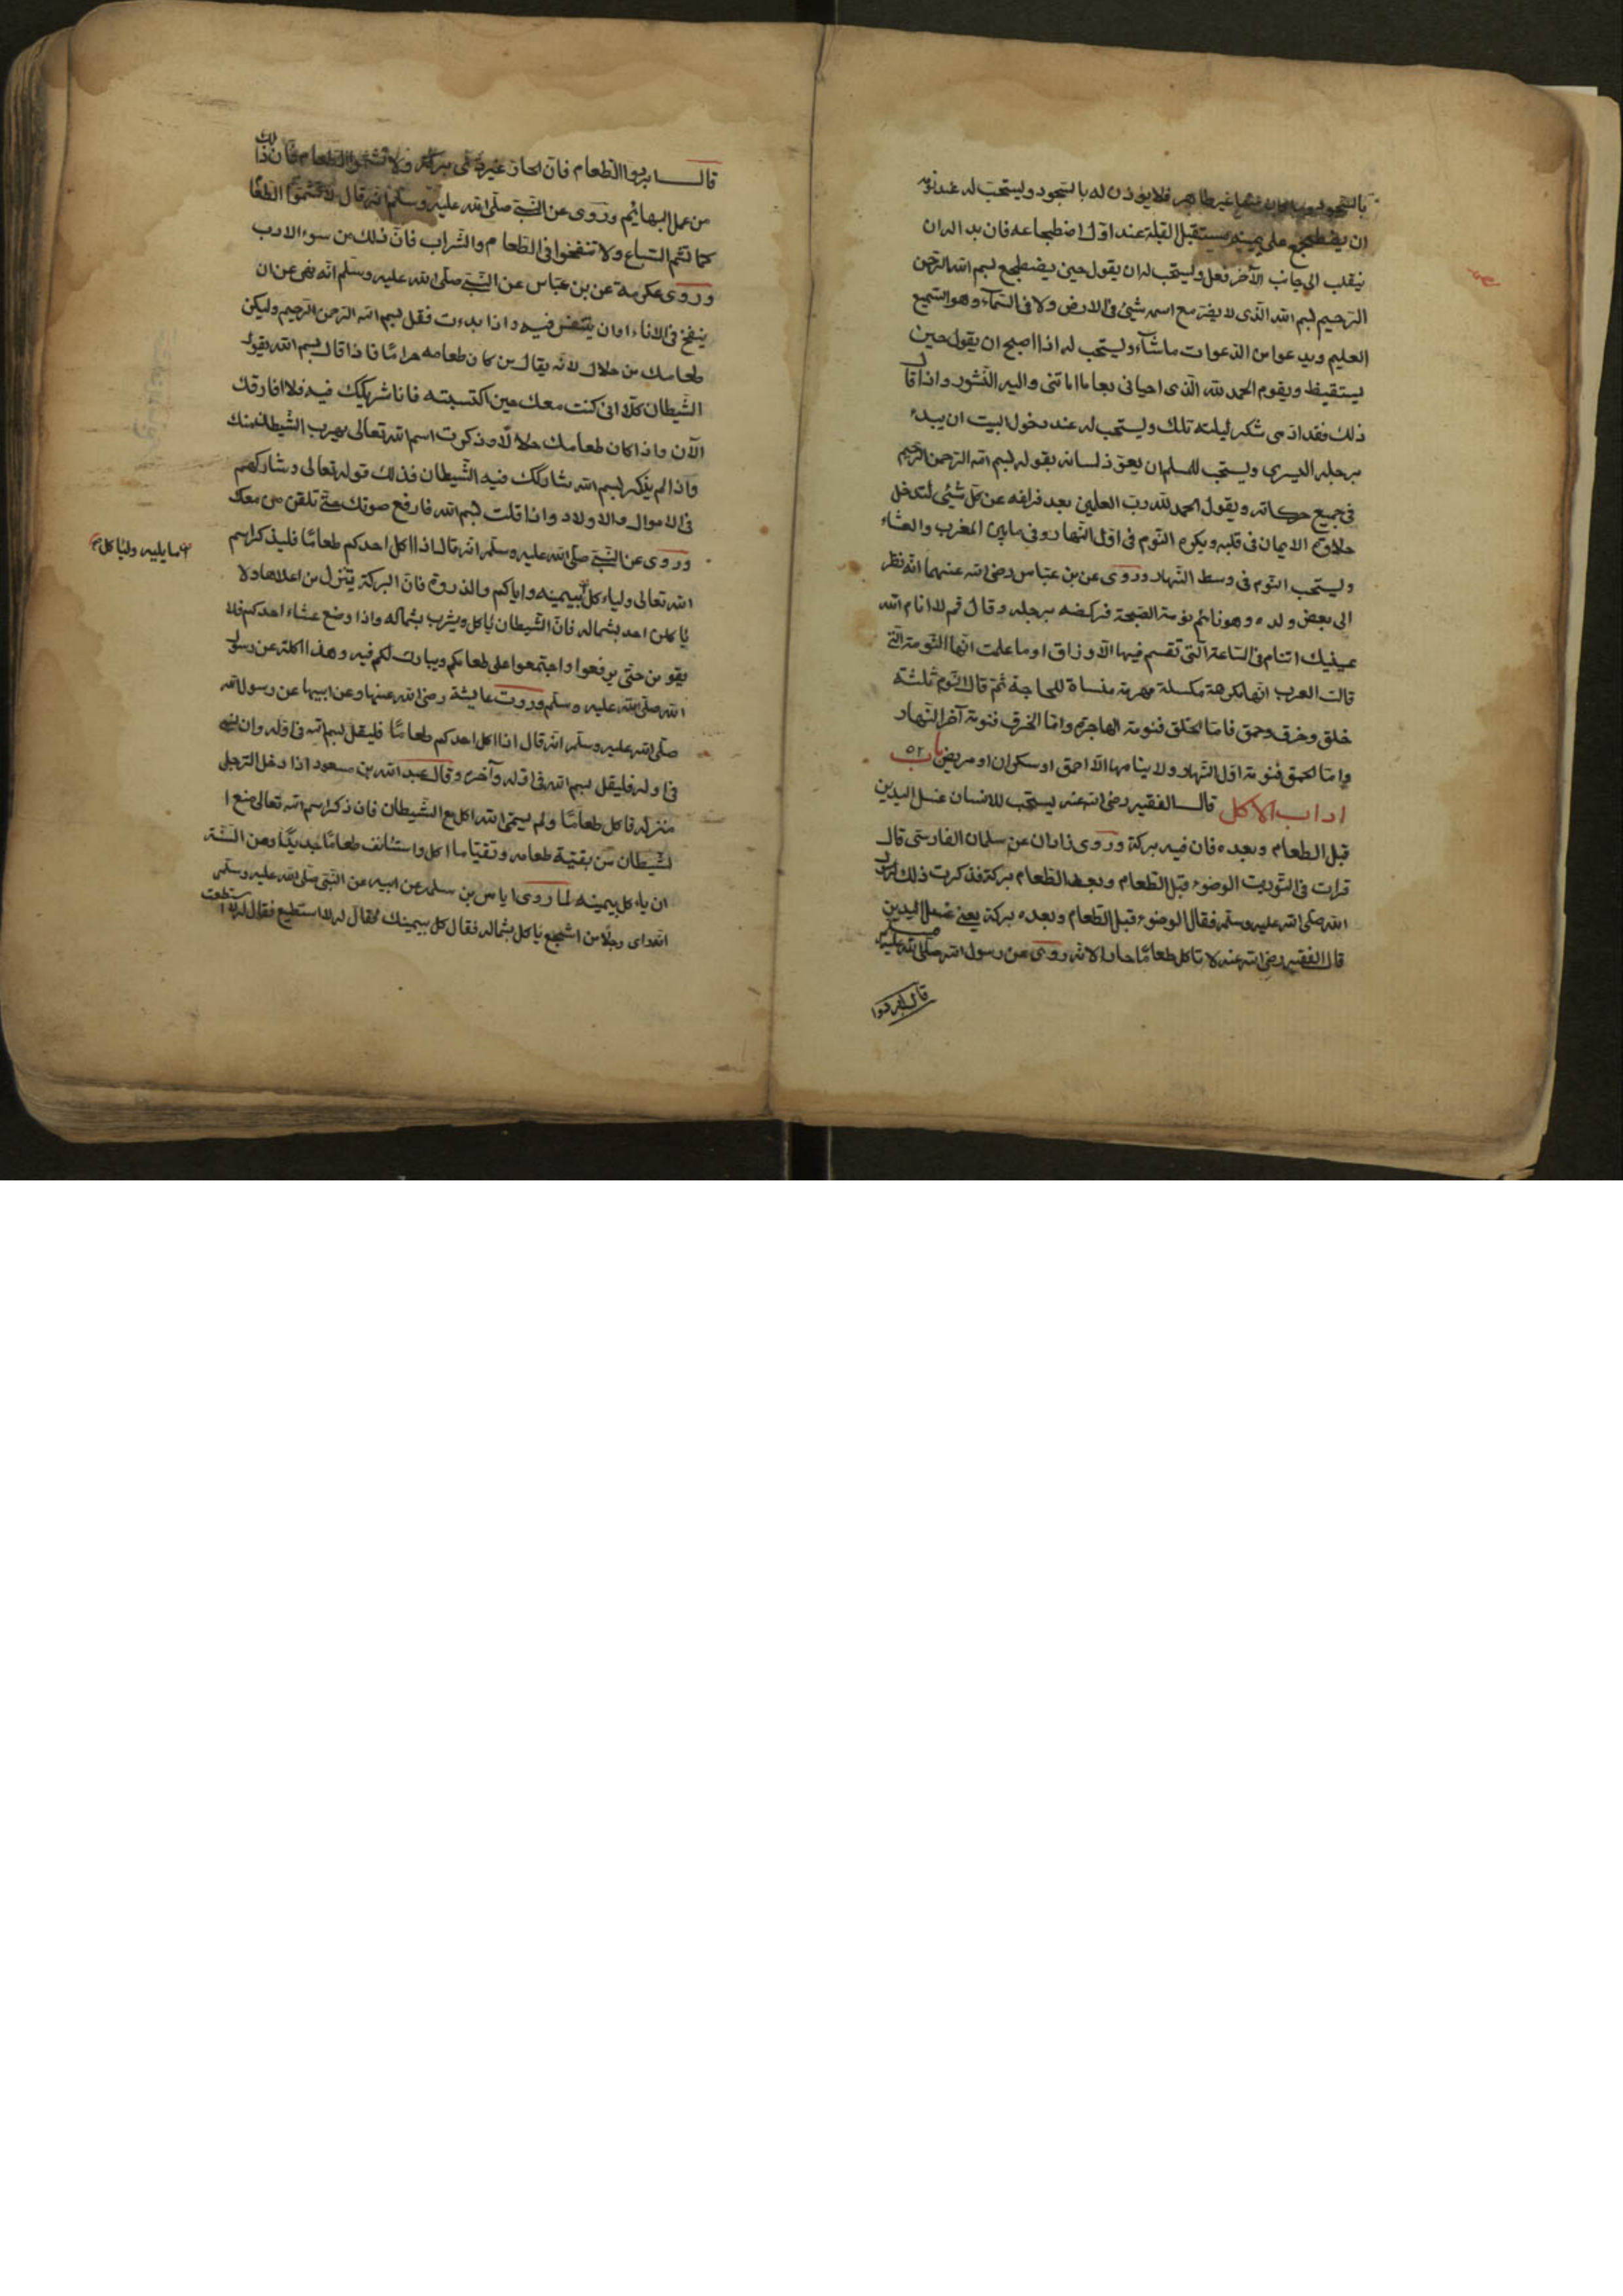 بالتجود غير طاهر فلا يؤذن له بالتجود ويستحب له عند نومه
ان يضطجع على يمينه يستقبل القبلة عند اوّل اضطجاعه فان بدا له ان
ينقلب الى جانب الآخر فعل ويستحب له ان يقول حين يضطجع بسم الله الرّحمن
الرّحيم بسم الله الّذى لا يضرّ مع اسمه شيئ فى الارض ولا فى السّمآء وهو السّميع
العليم ويدعوا من الدّعوات ماشآء ويستحب له اذا اصبح ان يقول حين
يستقيظ ويقوم الحمد لله الّذى احيانى بعد ما اماتنى واليه النّشور واذا قال
ذلك فقد ادّى شكر ليلته تلك ويستحب له عند دخول البيت ان يبدء
برجله اليسرى ويستحب للمسلم ان يعوّذ لسانه بقوله بسم الله الرّحمن الرّحيم
فى جميع حركاته ويقول الحمد لله ربّ العلمين بعد فراغه عن كلّ شيئ لتدخل
حلاوة الايمان فى قلبه ويكره النّوم فى اوّل النّهار وفى مابين المغرب والعشاء
ويستحب النّوم فى وسط النّهار وروى عن بن عبّاس رضى الله عنهما انّه نظر
الى بعض ولده وهو نائم نومة الصّبحة فركضه برجله وقال قم لا انام الله
عينيك اتنام فى السّاعة الّتى تقسم فيها الآرزاق اوما علمت انّها النّومة الّتى
قالت العرب انّها مكرهة مكسلة مهرمة منساة للحاجة ثمّ قال النّوم ثلثة
خلق وخرق وحمق فامّا الخلق فنومة الهاجرة وامّا الخرق فنومة آخر النّهار
وامّا الحمق فنومة اوّل النّهار ولا ينامها الّا احمق او سكران او مريض باب ٥٢
اداب الاكل قال الفقيه رضى الله عنه يستحب للانسان غسل اليدين
قبل الطّعام وبعده فان فيه بركة وروى زادان عن سلمان الفارسّى قال
قرات فى التّوريت الوضوء قبل الطّعام وبعد الطّعام بركة فذكرت ذلك لرسول
الله صلى الله عليه وسلّم فقال الوضوء قبل الطّعام وبعده بركة يعنى غسل اليدين
قال الفقيه رضى الله عنه لا تاكل طعامًا حارا لانّه روى عن رسول الله صلّى الله عليه وسلم
قال ابردوا
قال ابردوا الطّعام فانّ الحارّ غير ذى بركة ولا تشمّوا الطّعام فان ذلك
من عمل البهائم وروى عن النّبىّ صلّى الله عليه وسلّم انّه قال لا تشمّوا الطّعام
كما تشمّ السّباع ولا تنفخوا فى الطّعام والشّراب فانّ ذلك من سوء الادب
وروى عكرمة عن بن عبّاس عن النّبىّ صلّى الله عليه وسلّم انّه نهى عن ان
ينفخ فى الاناء او ان يتنفّس فيه واذا بدءت فقل بسم الله الرّحمن الرّحيم وليكن
طعامك من حلال لانّه يقال من كان طعامه حرامًا فاذا قال بسم الله يقول
الشّيطان كلّا انّى كنت معك حين اكتسبته فانا شريكك فيه فلا افارقك
الآن واذا كان طعامك حلالًا وذكرت اسم الله تعالى يهرب الشّيطان منك
واذا لم يذكر بسم الله شاركك فيه الشّيطان فذلك قوله تعالى وشاركهم
فى الاموال والاولاد واذا قلت بسم الله فارفع صوتك حتّى تلقّن من معك
وروى عن النّبىّ صلّى الله عليه وسلّم انّه قال اذا اكل احدكم طعامًا فليذكر اسم
الله تعالى ولياءكل بيمينه واياكم والذروة فانّ البركة يتنزل من اعلاها ولا
مما يليه ولياكل
ياكلن احد بشماله فانّ الشّيطان ياكل ويشرب بشماله واذا وضع عشاء احدكم فلا
يقومن حتّى يرفعوا واجتمعوا على طعامكم ويبارك لكم فيه وهذا كلّه عن رسول
الله صلّى الله عليه وسلّم وروت عايشة رضى الله عنها وعن ابيها عن رسول الله
صلّى الله عليه وسلّم انّه قال اذا اكل احدكم طعامًا فليقل بسم الله فى اوّله وان نسى
فى اوله فليقل بسم الله فى اوّله وآخره وقال عبد الله بن مسعود اذا دخل الرّجل
منزله فاكل طعامًا ولم يسمّى الله اكل مع الشّيطان فان ذكر اسم الله تعالى منع ا
لشّيطان من بقيّة طعامه وتقيّا ما اكل واستئانف طعامًا جديدًا ومن السّنّة
ان ياءكل بيمينه لما روى اياس بن سلمة عن ابيه عن النّبى صلّى الله عليه وسلّم
انّه راى رجلًا من اشجع ياكل بشماله فقال كل بيمينك فقال له لا استطيع فقال له لا استطعت